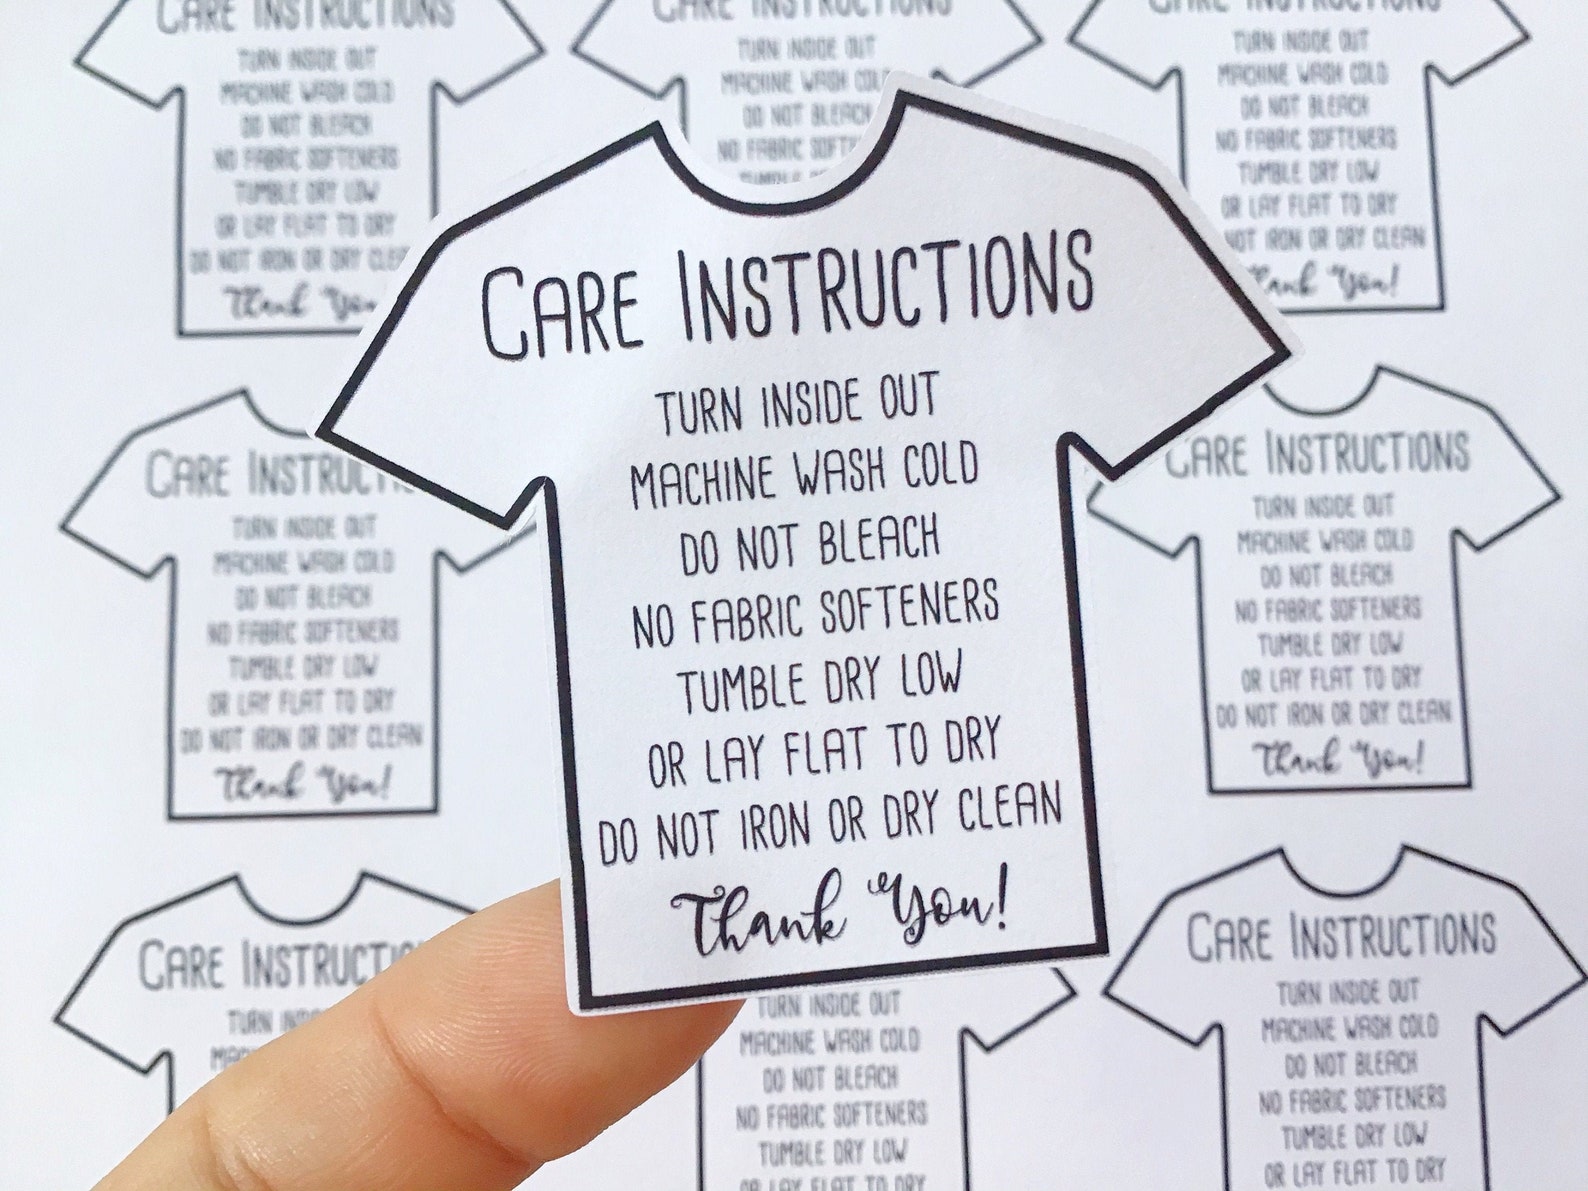 CARE INSTRUCTIONS
TURN INSIDE OUT
MACHINE WASH COLD
DO NOT BLEACH
NO FABRIC SOFTENERS
TUMBLE DRY LOW
OR LAY FLAT TO DRY
DO NOT IRON OR DRY CLEAN
Thank You!
CARE INSTRUCTIONS
TURN INSIDE OUT
MACHINE WASH COLD
DO NOT BLEACH
NO FABRIC SOFTENERS
TUMBLE DRY LOW
OR LAY FLAT TO DRY
DO NOT IRON OR DRY
Thank You
CARE INSTRUCTIONS
TURN INSIDE OUT
MACHINE WASH COLD
DO NOT BLEACH
NO FABRIC
CARE INSTRUCTIONS
TURN INSIDE OUT
MACHINE WASH COLD
DO NOT BLEACH
NO FABRIC SOFTENERS
TUMBLE DRY LOW
OR LAY FLAT TO DRY
NOT IRON OR DRY CLEAN
Thank You!
CARE
TURN INSIDE OUT
MACHINE WASH COLD
DO NOT BLEACH
NO FABRIC SOFTENERS
TUMBLE DRY LOW
OR LAY FLAT TO DRY
DO NOT IRON OR DRY CLEAN
Thank You!
CARE INSTRUCTIONS
TURN INSIDE OUT
MACHINE WASH COLD
DO NOT BLEACH
NO FABRIC SOFTENERS
TUMBLE DRY LOW
OR LAY FLAT TO DRY
DO NOT IRON OR DRY CLEAN
Thank You!
CARE
TURN
TURN INSIDE OUT
MACHINE WASH COLD
DO NOT BLEACH
NO FABRIC SOFTENERS
TUMBLE DRY LOW
OR LAY FLAT TO DRY
CARE INSTRUCTIONS
TURN INSIDE OUT
MACHINE WASH COLD
DO NOT BLEACH
NO FABRIC SOFTENERS
TUMBLE DRY LOW
OR LAY FLAT TO DRY